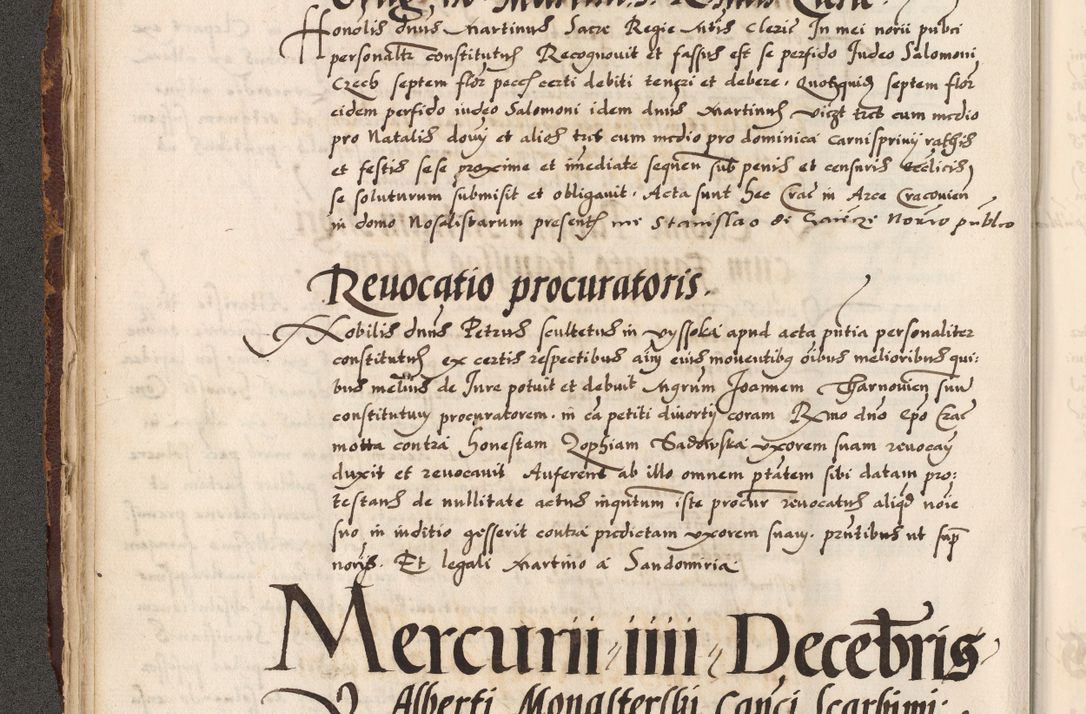 Honolis dnus Martinus Sacre Regie Mtis Cleric In mei norii pubci
personaltr constitutus Recognovit et fassus est se perfido Judeo Salomoni
Czech septem flor pecch certi debiti teneri et debere. Quosquid septem flor
eidem perfido iudeo Salomoni idem dnus Martinus viczt trct cum medio
pro Natalis dony et alios trct cum medio pro dominica Carnisprivy rathis
et festis sese proxime et imediate sequen sub penis et censuris ecclicis
se soluturum submisit et obligauit. Acta sunt hec Crac in Arce Cracovien
in domo Rosalistarum presentib me Stanislao de notro publco
Reuocatio procuratoris.
Nobilis dnus Petrus scultetus in vyssoka apud acta putia personaliter
constitutus ex certis respectibus aim eius mouentibq oibus melioribus qui:
bus melius de Jure potuit et debuit Mgrum Joannem Tharnouien suu
constitutuy procuratorem. in ca petiti diuortij coram Rmo dno epo Crac
motta contra honestam Zophiam Sadowska vxorem suam reuocay
duxit et reuocauit Auferens ab illo omnem ptatem sibi datam pro:
testans de nullitate actus inquntum iste procur reuocatus aliqd noie
suo in inditio gesserit contra predictam vxorem suam. prntibus ut sup
norijs. Et legali Martino a Sandomiria
Mercurii iiii Decebris
Alberti Monasterski Canci Scarbimi: